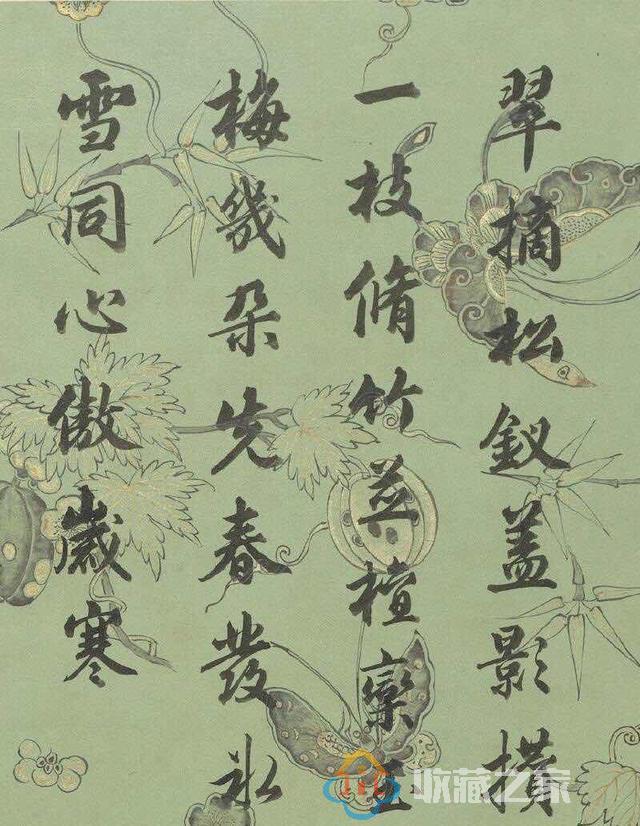 翠摘松釵蓋影攢
一枝脩竹並檀欒玉
梅幾朵先春發氷
雪同心傲歲寒
收藏之家